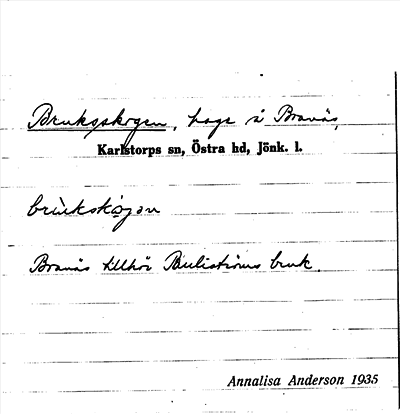 Bruksskogen, hage å Branås,
Karlstorps sn, Östra hd, Jönk. l.
brù̀kskogən
Branås tillhör Pauliströms bruk.
Annalisa Anderson 1935